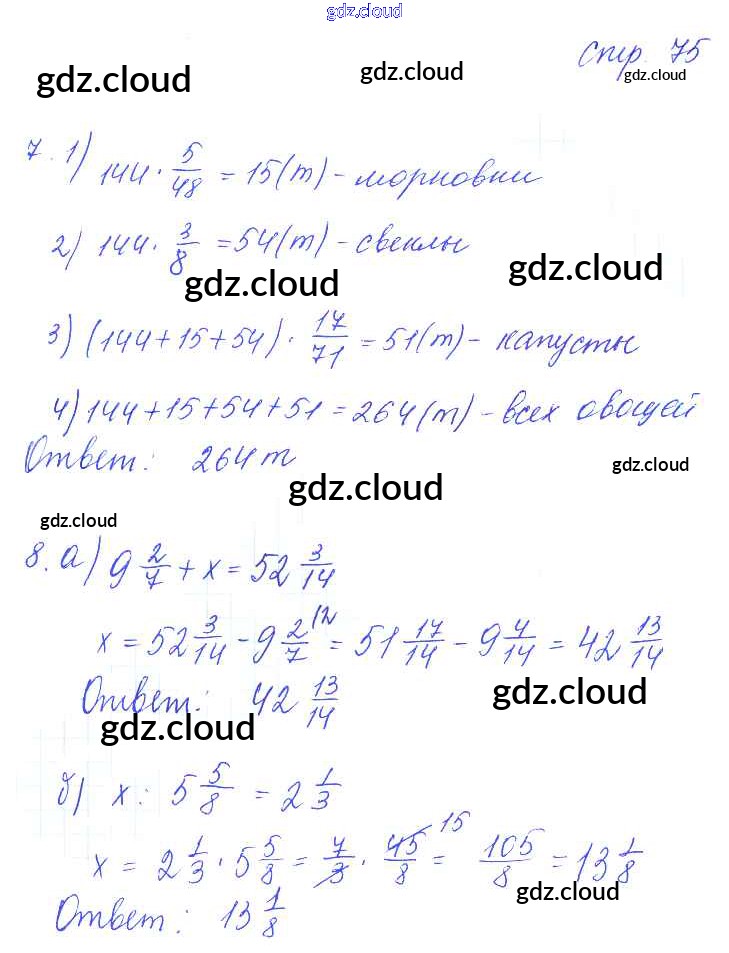 gdz.cloud
Стр. 75
gdz.cloud gdz.cloud gdz.cloud
7. 1) 144 · 5/48 = 15(т) - морковки
2) 144 · 3/8 = 54(т) - свеклы
gdz.cloud gdz.cloud
3) (144 + 15 + 54) · 17/71 = 51(т) - капусты
4) 144 + 15 + 54 + 51 = 264(т) - всех овощей
Ответ: 264 т
gdz.cloud gdz.cloud
gdz.cloud
8. а) 9 2/7 + x = 52 3/14
x = 52 3/14 - 9 2/7 /2 = 51 17/14 - 9 4/14 = 42 13/14
Ответ: 42 13/14
gdz.cloud gdz.cloud
б) x : 5 5/8 = 2 1/3
x = 2 1/3 · 5 5/8 = 7/3 · 45/8 15 = 105/8 = 13 1/8
gdz.cloud
Ответ: 13 1/8